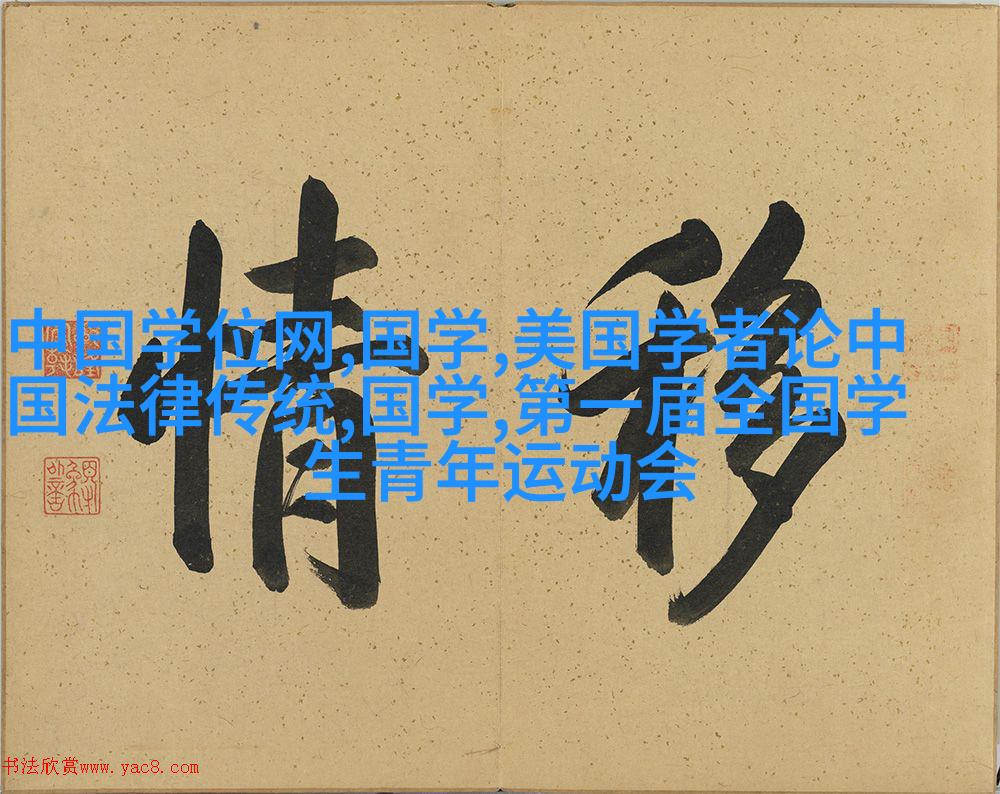 移情
中国学位网,国学,美国学者论中
国法律传统,国学,第一届全国学
生青年运动会
书法欣赏www.yac8.com